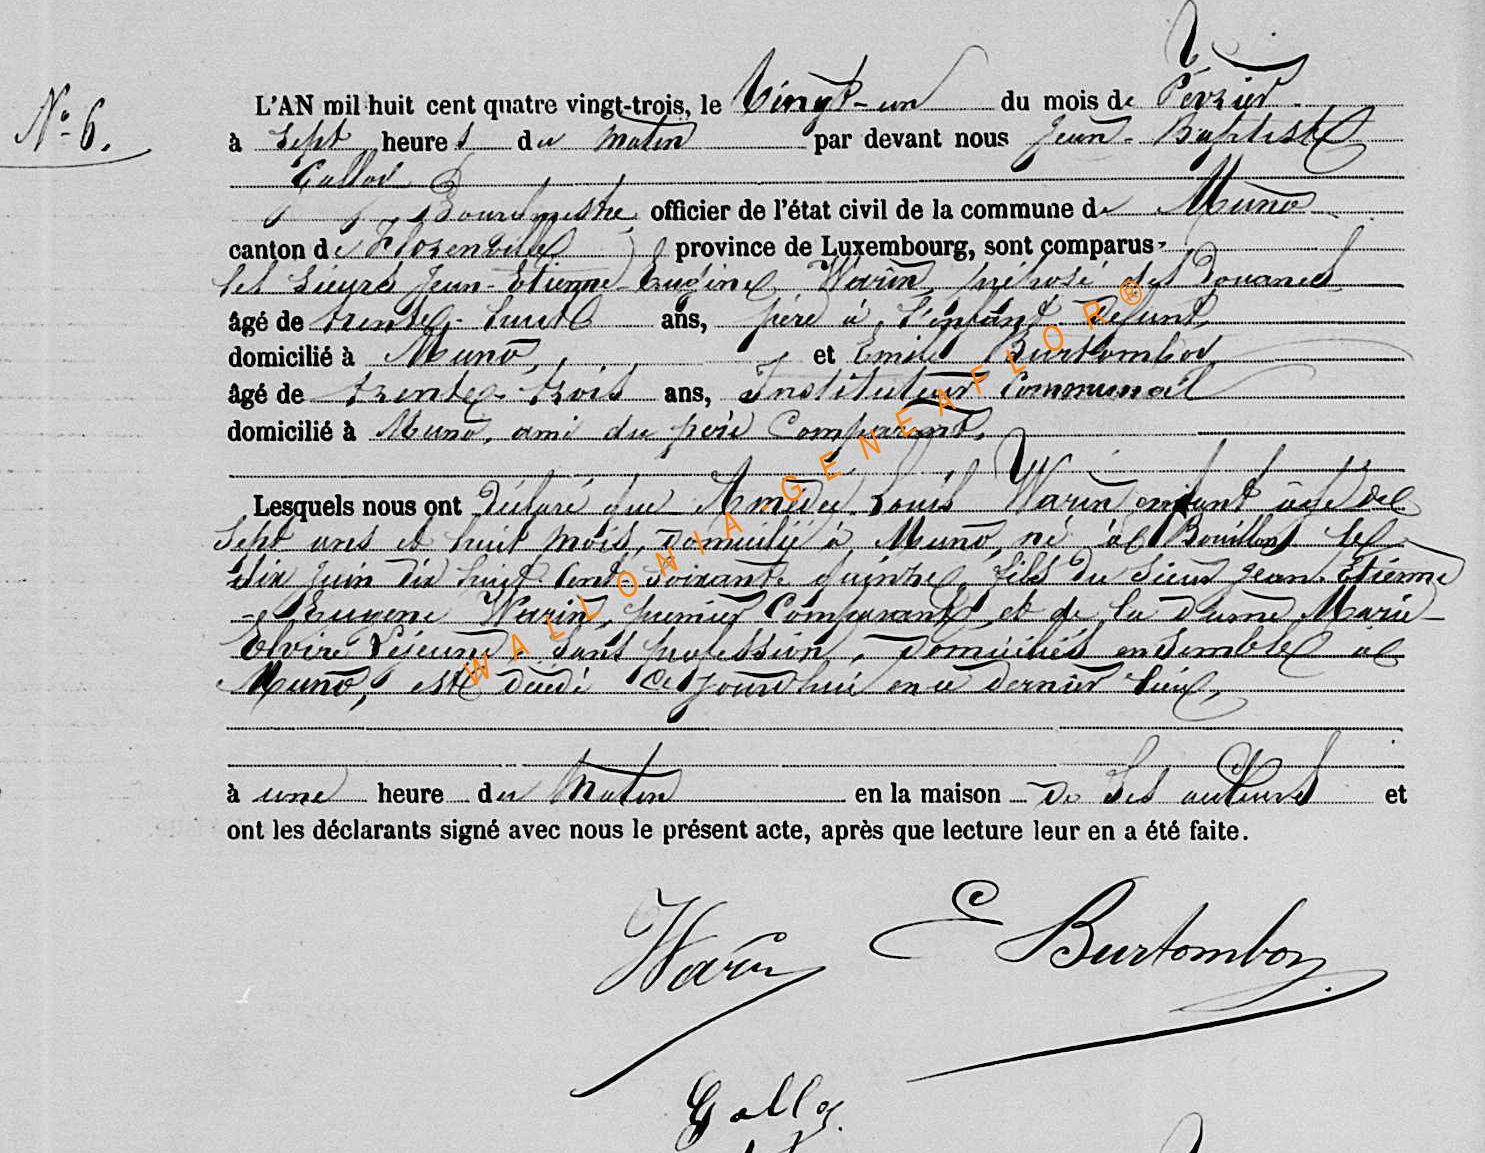 N° 6.
L'AN mil huit cent quatre vingt-trois, le Vingt-un du mois de Février
à sept heures du matin par devant nous Jean-Baptiste
Bourgmestre officier de l'état civil de la commune de Muno
canton de Florenville province de Luxembourg, sont comparus
les sieurs Jean-Etienne-Eugène Warin, préposé des Douanes
âgé de trente-huit ans, père à l'enfant défunt,
domicilié à Muno, et Emile Burtomboy,
âgé de trente-trois ans, Instituteur Communal
domicilié à Muno, ami du père Comparant,
Lesquels nous ont Déclaré que Amédée Louis Warin enfant âgé de
Sept ans et huit mois, domicilié à Muno, né à Bouillon le
dix Juin dix huit Cent-soixante quinze, fils du sieur Jean-Etienne
-Eugène Warin, premier Comparant, et de la Dame Marie-
Elvire sans profession, domiciliés ensemble à
Muno, est décédé ce jourd'hui en ce dernier lieu,
à une heure du Matin en la maison de ses auteurs et
ont les déclarants signé avec nous le présent acte, après que lecture leur en a été faite.
Warin E Burtomboy
WALLONIA.GENEAFLOR®